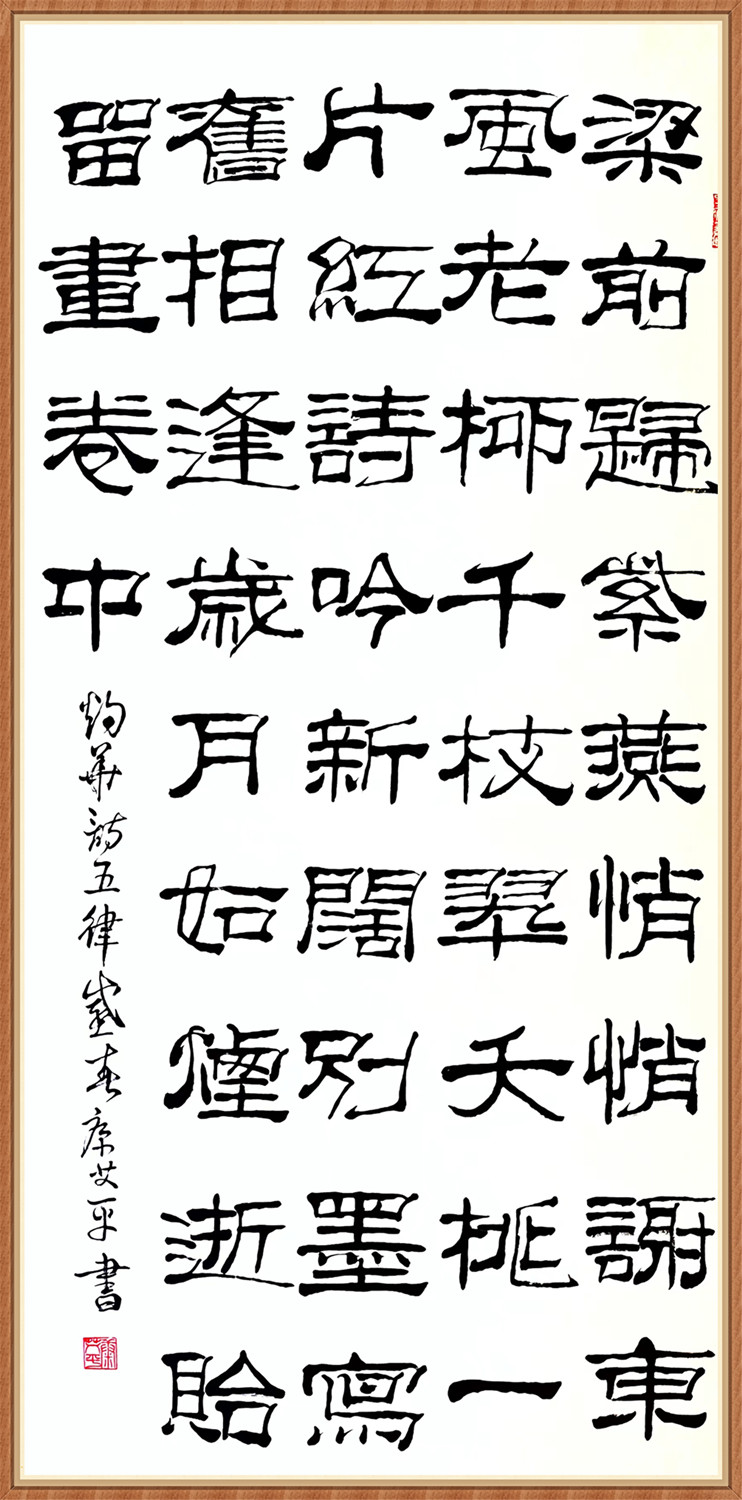 梁前歸紫燕悄悄謝東
風老柳千枝翠夭桃一
片紅詩吟新闊別墨寫
舊相逢歲月如煙逝貽
留畫卷中
灼華詩五律感春康艾平書